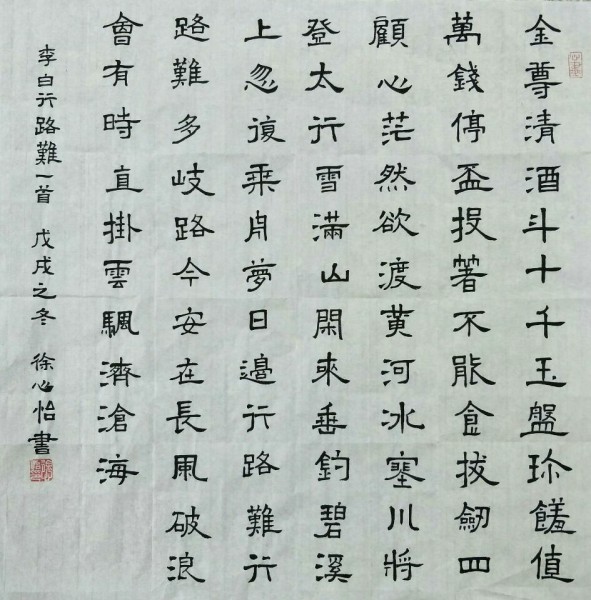 金尊清酒斗十千玉盤珍饈值
萬錢停盃投著不能食拔劒四
顧心茫然欲渡黃河冰塞川將
登太行雪滿山閑來垂釣碧溪
上忽復乘舟夢日邊行路難行
路難多岐路今安在長風破浪
會有時直掛雲颿濟滄海
李白行路難一首 戊戌之冬 徐心怡書